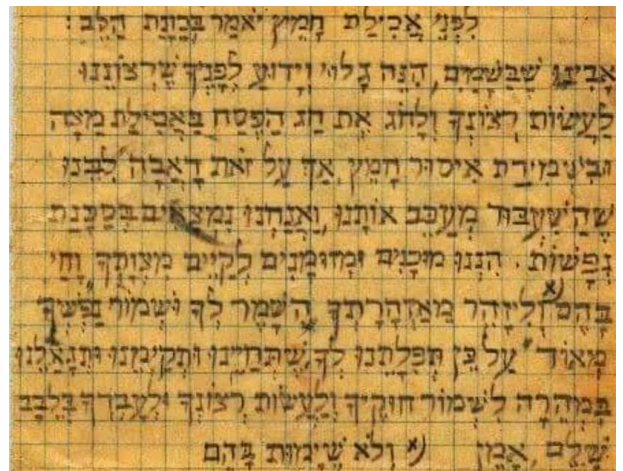 לִפְנֵי אֲכִילַת חָמֵץ יֹאמַר בְּכַוָּנַת הַלֵּב :
אָבִינוּ שֶׁבַּשָּׁמַיִם, הִנֵּה גָּלוּי וְיָדוּעַ לְפָנֶיךָ שֶׁרְצוֹנֵנוּ
לַעֲשׂוֹת רְצוֹנְךָ וְלָחֹג אֶת חַג הַפֶּסַח בַּאֲכִילַת מַצָּה
וּבִשְׁמִירַת אִיסוּר חָמֵץ, אַךְ עַל זֹאת דָּאֲבָה לִבֵּנוּ
שֶׁהַשִּׁעְבּוּד מְעַכֵּב אוֹתָנוּ, וַאֲנַחְנוּ נִמְצָאִים בְּסַכָּנַת
נְפָשׁוֹת. הִנְנוּ מוּכָנִים וּמְזוּמָּנִים לְקַיֵּים מִצְוָתְךָ וָחַי
בָּהֶם x) וְלִיזָּהֵר מֵאַזְהָרָתְךָ הִשָּׁמֶר לְךָ וּשְׁמוֹר נַפְשְׁךָ
מְאוֹד" עַל כֵּן תְּפִלָּתֵנוּ לְךָ שֶׁתְּחַיֵּינוּ וּתְקַיְּמֵנוּ וְתִגְאָלֵנוּ
בִּמְהֵרָה לִשְׁמוֹר חוּקֶּיךָ וְלַעֲשׂוֹת רְצוֹנְךָ וּלְעָבְדְּךָ בְּלֵבָב
שָׁלֵם, אָמֵן x) וְלֹא שֶׁיָּמוּת בָּהֶם